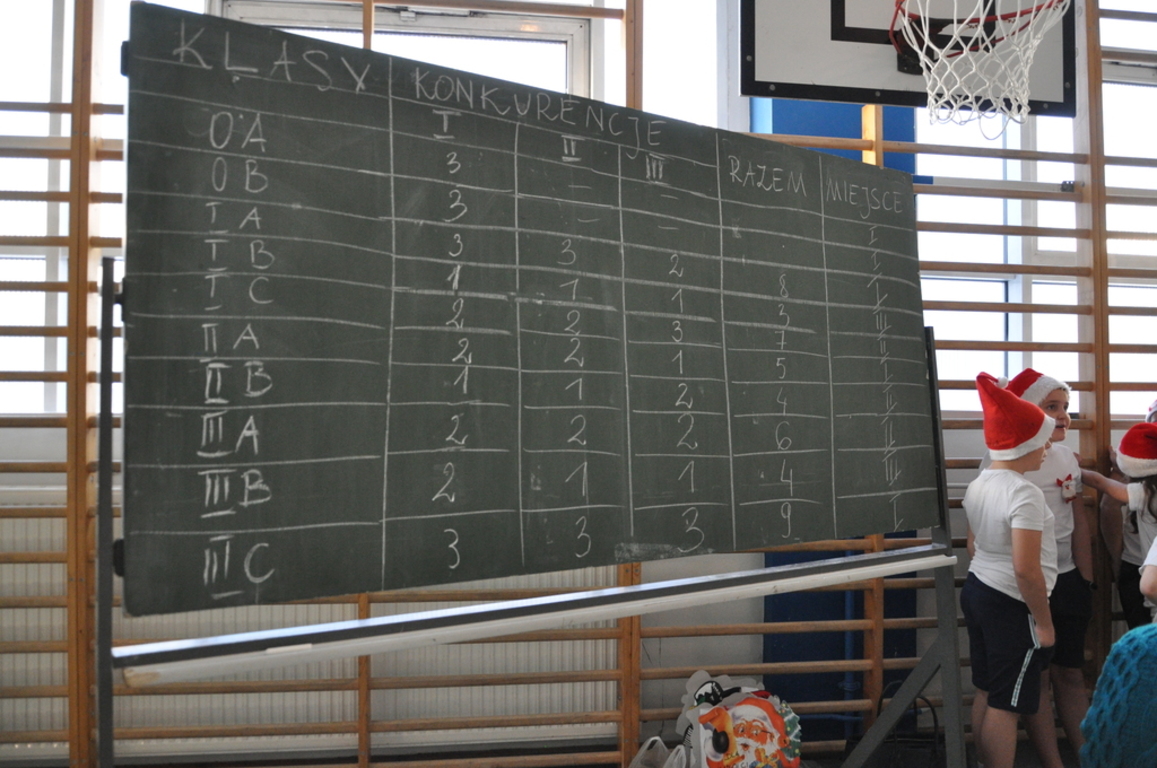 KLASY KONKURENCJE RAZEM MIEJSCE
I II III
0A 3 – – I
0B 3 – – I
I A 3 3 2 8 I
I B 1 1 1 3 III
I C 2 2 3 7 II
II A 2 2 1 5 I
II B 1 1 2 4 II
III A 2 2 2 6 II
III B 2 1 1 4 III
III C 3 3 3 9 I